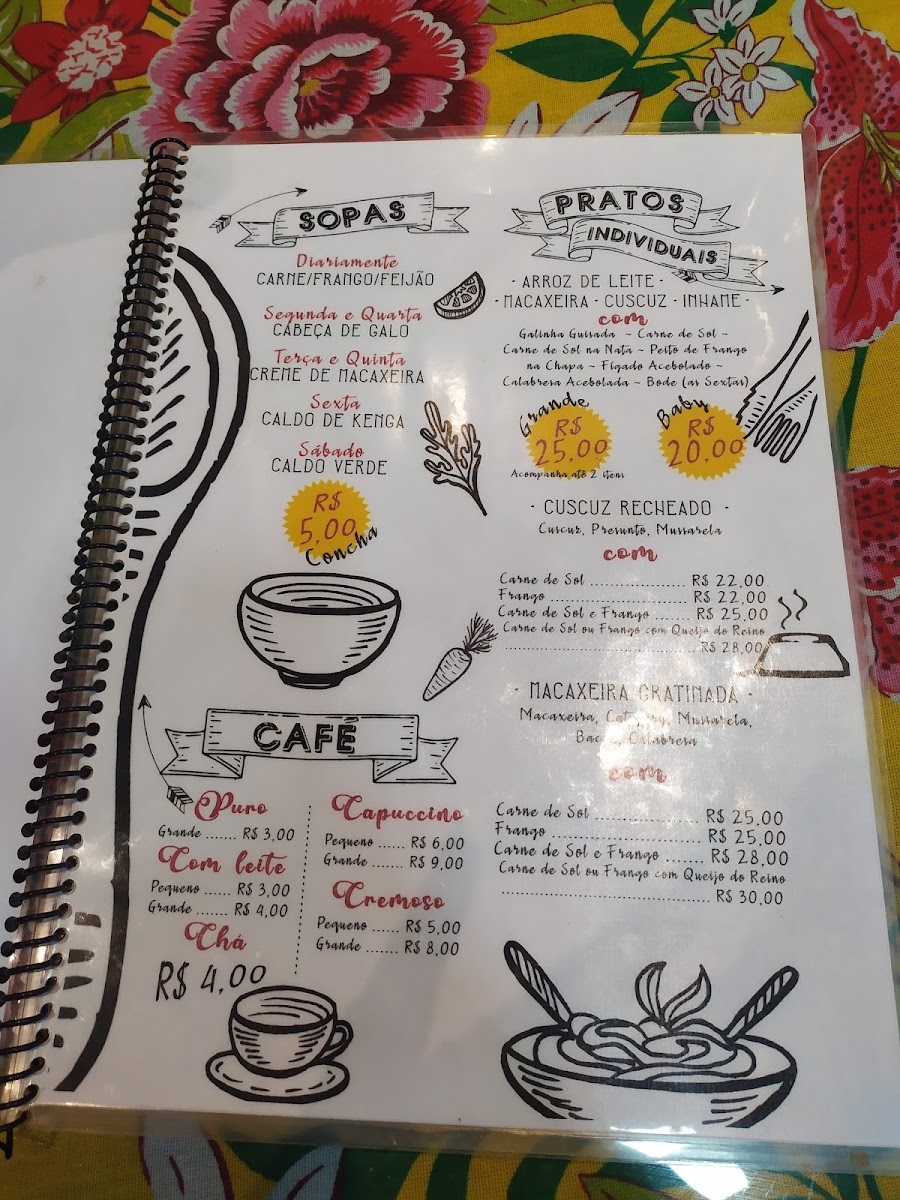 SOPAS
Diariamente
CARNE/FRANGO/FEIJÃO
Segunda e Quarta
CABEÇA DE GALO
Terça e Quinta
CREME DE MACAXEIRA
Sexta
CALDO DE KENGA
Sábado
CALDO VERDE
R$
5,00
Concha
CAFÉ
Puro
Grande ....... R$ 3,00
Com leite
Pequeno ...... R$ 3,00
Grande ....... R$ 4,00
Chá
R$ 4,00
Capuccino
Pequeno ...... R$ 6,00
Grande ....... R$ 9,00
Cremoso
Pequeno ...... R$ 5,00
Grande ....... R$ 8,00
PRATOS
INDIVIDUAIS
· ARROZ DE LEITE ·
· MACAXEIRA · CUSCUZ · INHAME ·
com
Galinha Guisada ~ Carne de Sol ~
Carne de Sol na Nata ~ Peito de Frango
na Chapa ~ Fígado Acebolado ~
Calabresa Acebolada ~ Bode (as Sextas)
Grande
R$
25,00
Acompanha até 2 itens
Baby
R$
20,00
· CUSCUZ RECHEADO ·
Cuscuz, Presunto, Mussarela
com
Carne de Sol ..................... R$ 22,00
Frango ............................ R$ 22,00
Carne de Sol e Frango ....... R$ 25,00
Carne de Sol ou Frango com Queijo do Reino
........................................ R$ 28,00
· MACAXEIRA GRATINADA ·
Macaxeira, Mussarela,
Calabresa
com
Carne de Sol ..................... R$ 25,00
Frango ............................ R$ 25,00
Carne de Sol e Frango ....... R$ 28,00
Carne de Sol ou Frango com Queijo do Reino
........................................ R$ 30,00